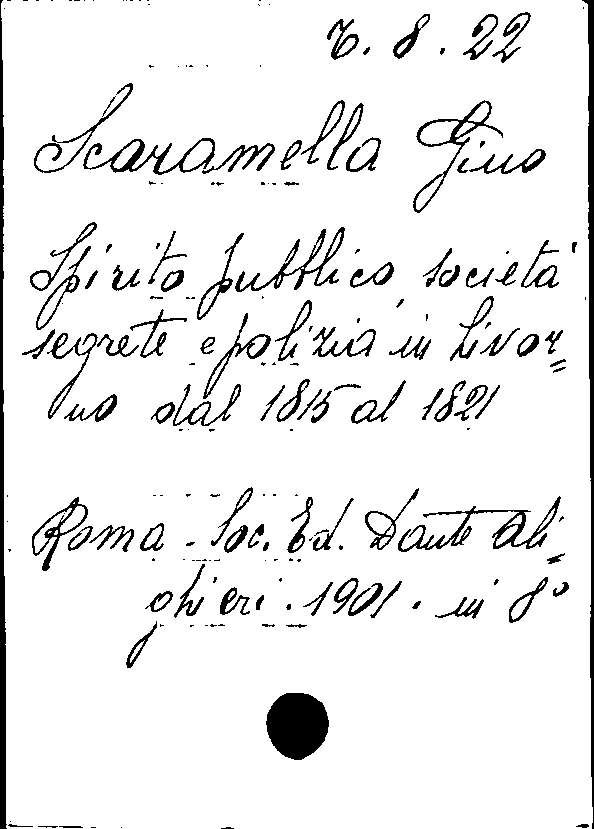 6. 8. 22
Scaramella Gino
Spirito pubblico, società
segrete e polizia in Livor=
no dal 1815 al 1821
Roma - Soc. Ed. Dante Ali=
ghieri. 1901. in 8º